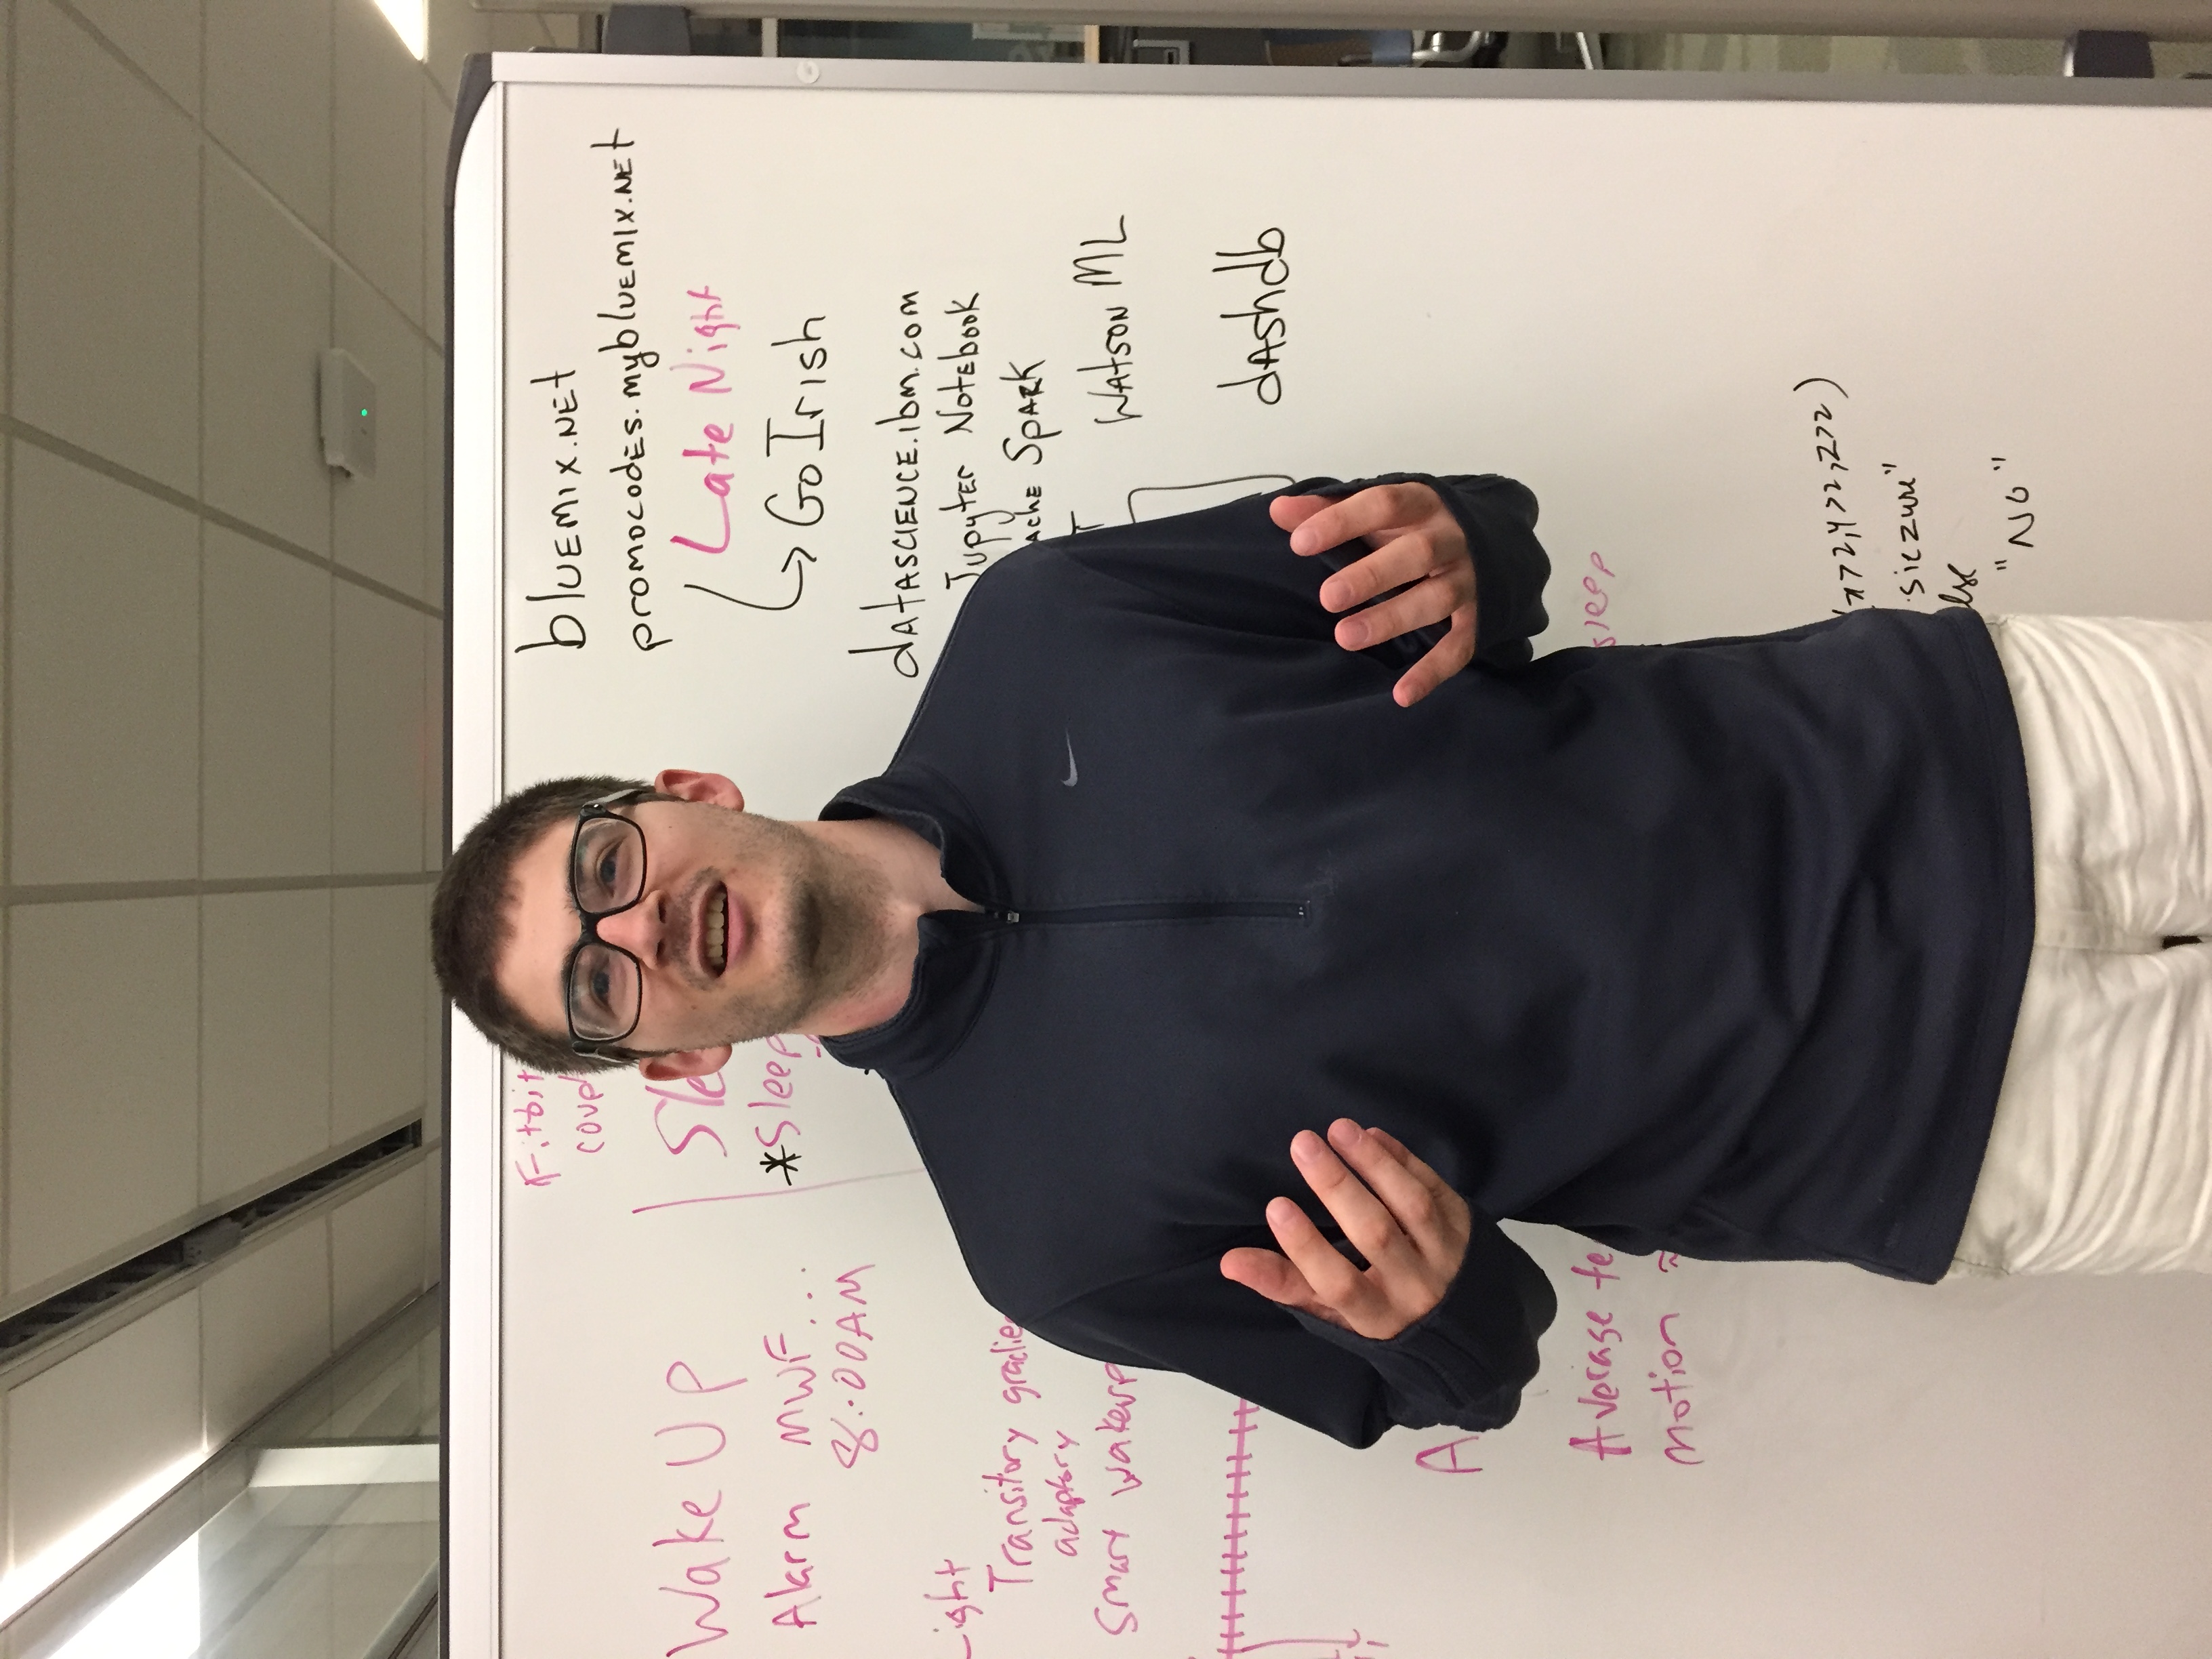 Fitbit
Wake Up
Alarm MWF...
8:00AM
Light
Transitory
adaptory
Smart wakeup
*Sleep
Average
motion ≈
sleep
bluemix.net
promocodes.mybluemix.net
Late Night
Go Irish
datascience.ibm.com
Jupyter Notebook
Spark
Watson ML
dashdb
(x>2,y>2,z>2)
siezure"
"No"